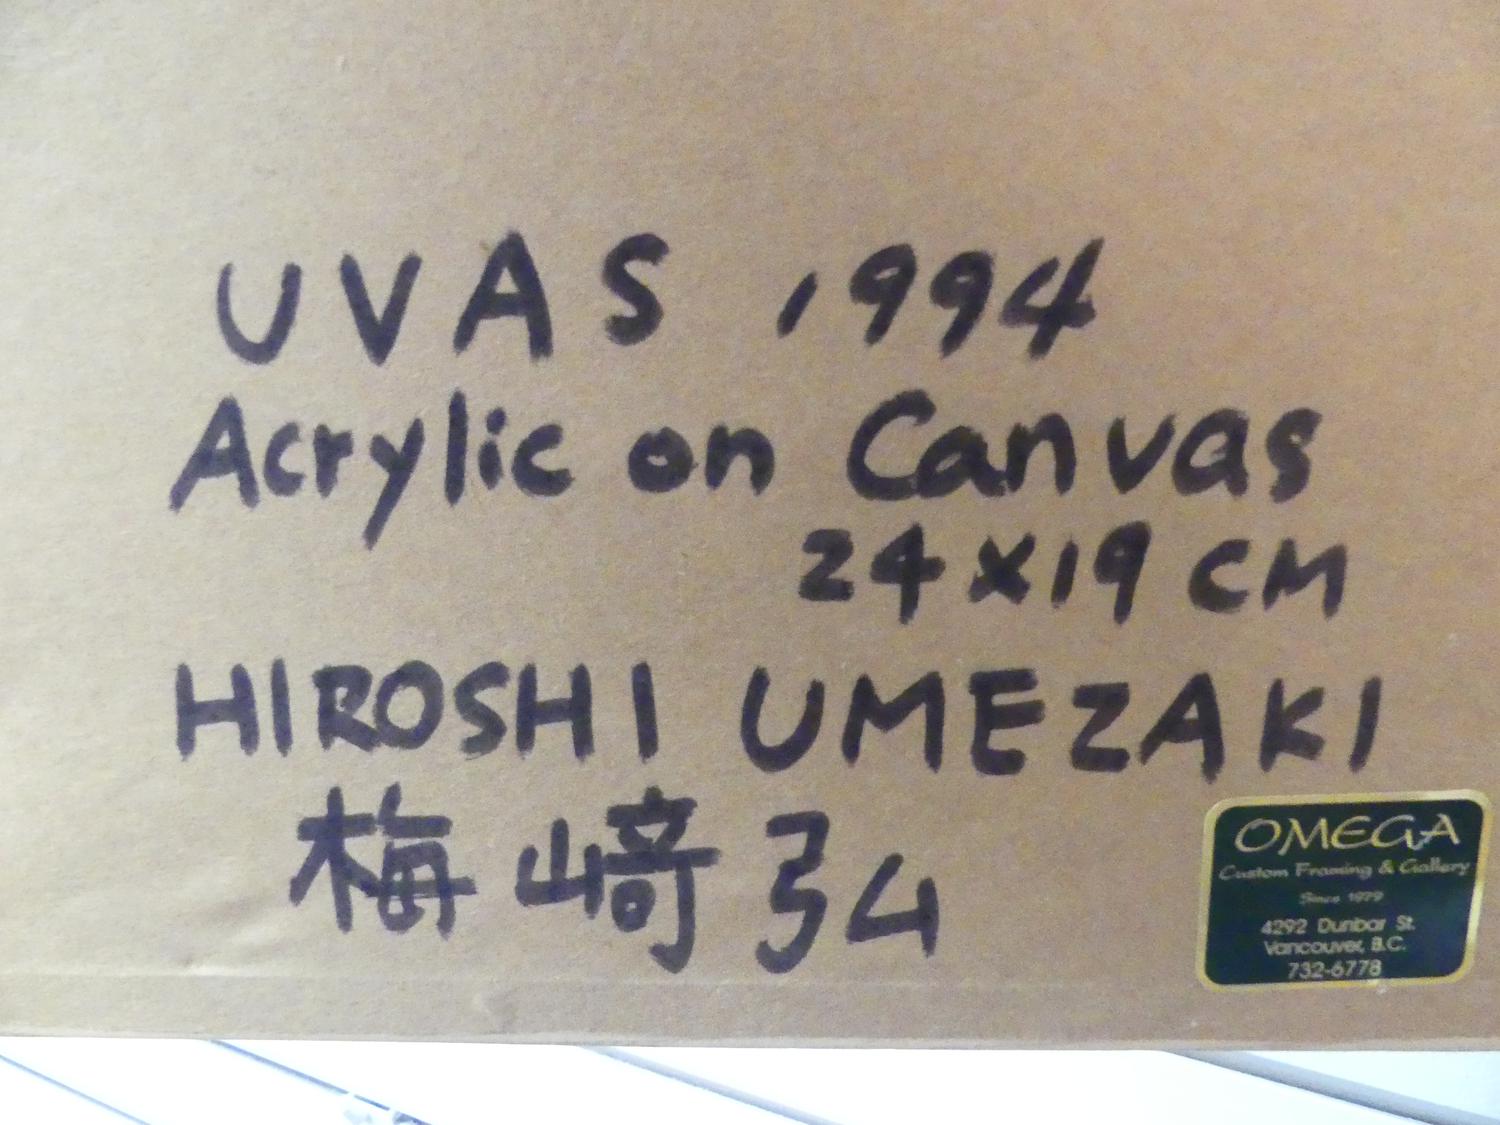 UVAS 1994
Acrylic on Canvas
24x19 CM
HIROSHI UMEZAKI
梅﨑弘
OMEGA
Custom Framing & Gallery
Since 1979
4292 Dunbar St.
Vancouver, B.C.
732-6778